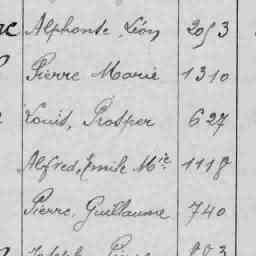 Alphonse, Léon 2053
Pierre Marie 1310
Louis, Prosper 627
Alfred, Emile Mie 1118
Pierre, Guillaume 740
Joseph 803